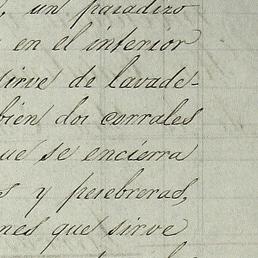 , un paradizo
en el interior
sirve de lavade-
bien dos corrales
que se encierra
s y pesebreras,
nes que sirve